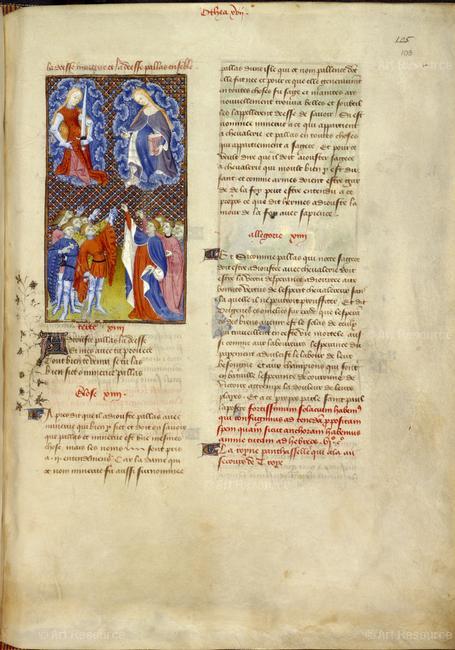 Othea xiiij.
105
103
la deesse minerve et la deesse pallas ensemble
texte xiiij
Adiouste pallas la deesse
Et mez avec ta prouece
Tout bien te vendra se tu las
bien siet o minerve pallas
Glose xiiij.
Apres dit que il adiouste pallas avec
minerve qui bien y siet et doit en savoir
que pallas et minerve est une mesmes
chose mais les noms sont pris
a .ii. entendemens Car la dame qui
ot nom minerve fu aussi surnommee
pallas dune isle qui ot nom pallence dot
elle fut nee et pource que elle generaument
en toutes choses fu sage et maintes ars
nouvellement trouva belles et soubtil
les lappellerent deesse de savoir Si est
nommee minerve a ce qui appartient
a chevalerie et pallas en toutes choses
qui appartienent a sagece Et pource
veult dire que il doit adiouster sagece
a chevalerie qui moult bien y est du
sant et comme armes doivent estre gar
de de la foy puet estre entendu a ce
propos ce que dit hermes adiouste la
mour de la foy avec sapience
allegorie xiiij
Et si comme pallas qui note sagece
doit estre adioustee avec chevalerie doit
estre la vertu desperance adioustee aux
bonnes vertus de lesperit chevalereux sans
la quelle il ne pourroit prouffiter Et dit
Origenes es omelies sur exode que lesperance
des biens a venir est le solas de ceulx
qui travaillent en ceste vie mortelle aus
si comme aux laboureurs lesperance du
paiement adoulcist le labour de leur
besoigne et aux champions qui sont
en bataille lesperance de couronne de
victoire attrempe la douleur de leurs
playes Et a ce propos parle saint paul
lapostre fortissimum solacium habemus
qui confugimus ad tenendam propositam
spem quam sicut anchoram habemus
anime tutam ad hebreos .vi.º cº
La royne panthasselle qui ala au
secours de Troye
© Art Resource
© Art Resource